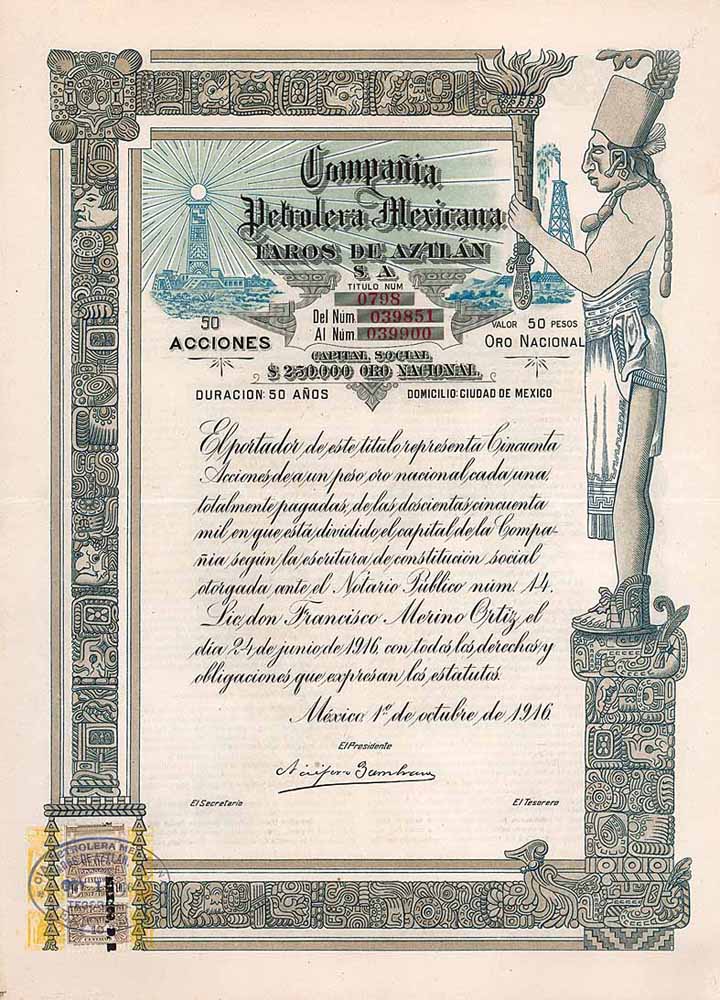 Compañia
Petrolera Mexicana
FAROS DE AZTLÁN
S. A.
TITULO NUM
0798
Del Núm 039851
Al Núm 039900
50
ACCIONES
VALOR 50 PESOS
ORO NACIONAL
CAPITAL SOCIAL
$ 250.000 ORO NACIONAL
DURACION: 50 AÑOS
DOMICILIO: CIUDAD DE MEXICO
El portador de este título representa Cincuenta
Acciones de a un peso oro nacional cada una,
totalmente pagadas, de las doscientas cincuenta
mil en que está dividido el capital de la Compa-
ñia según la escritura de constitución social
otorgada ante el Notario Público núm. 14.
Lic. don Francisco Merino Ortiz, el
día 24 de junio de 1916, con todos los derechos y
obligaciones que expresan los estatutos.
México, 1º de octubre de 1916
El Presidente
El Secretario
El Tesorero
PETROLERA ME
DE AZTLAN